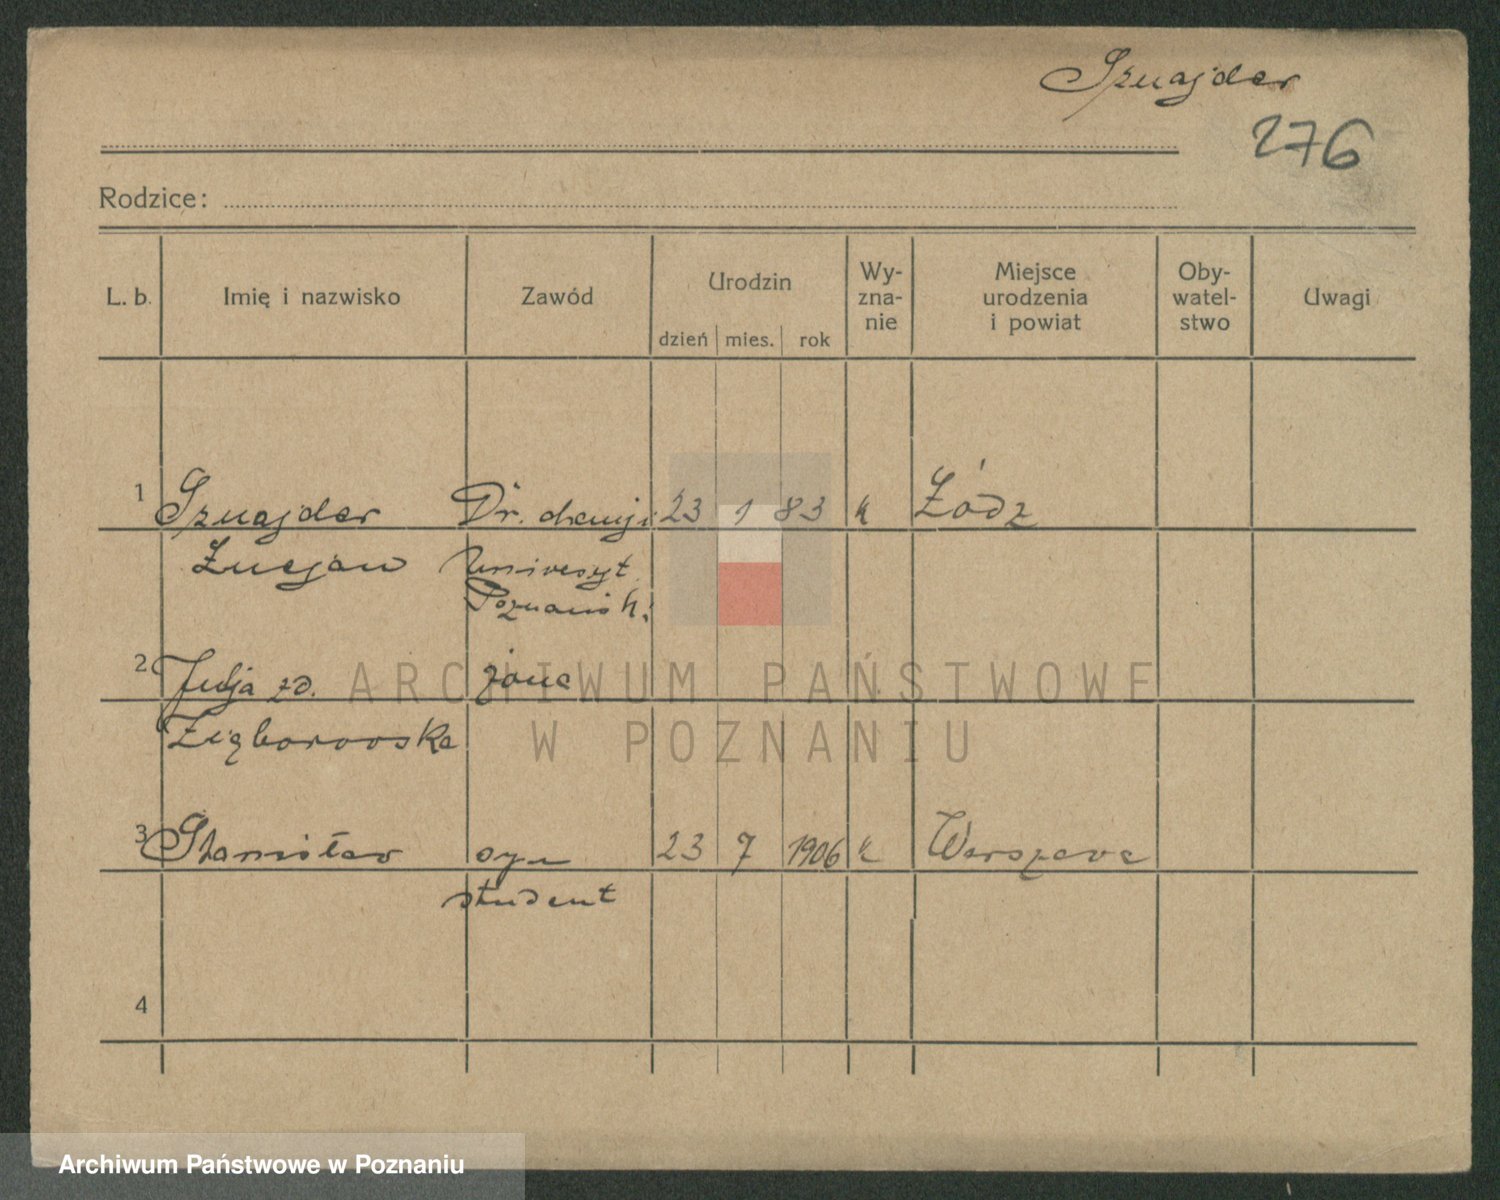 Sznajder
276
Rodzice:
L. b. Imię i nazwisko Zawód Urodzin dzień mies. rok Wy-zna-nie Miejsce urodzenia i powiat Oby-watel-stwo Uwagi
1 Sznajder Dr. chemji 23 1 83 k Łódz
Łucjan Uniwesyt
Poznańsk.
2 Julja zd. żona
Ziąborowska
3 Stanisław syn 23 7 1906 k Warszawa
student
4
ARCHIWUM PAŃSTWOWE
W POZNANIU
Archiwum Państwowe w Poznaniu